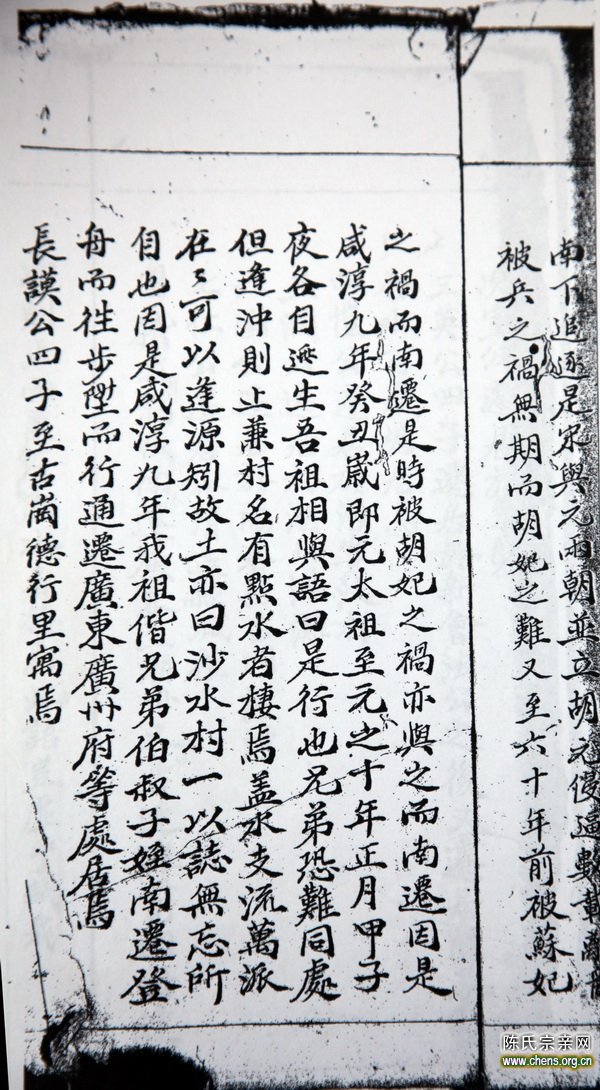 南下追逐是宋與元兩朝並立胡元侵逼數載
被兵之禍無期而胡妃之難又至六十年前被蘇妃
之禍而南遷是時被胡妃之禍亦與之而南遷因是
咸淳九年癸丑嵗即元太祖至元之十年正月甲子
夜各自逃生吾祖相與語曰是行也兄弟恐難同處
但逢沖則止兼村名有點水者棲焉盖水支流萬派
在在可以逢源矧故土亦曰沙水村一以誌無忘所
自也因是咸淳九年我祖偕兄弟伯叔子姪南遷登
舟而往步陞而行通遷廣東廣州府等處居焉
長謨公四子至古崗德行里寓焉
陈氏宗亲网
www.chens.org.cn